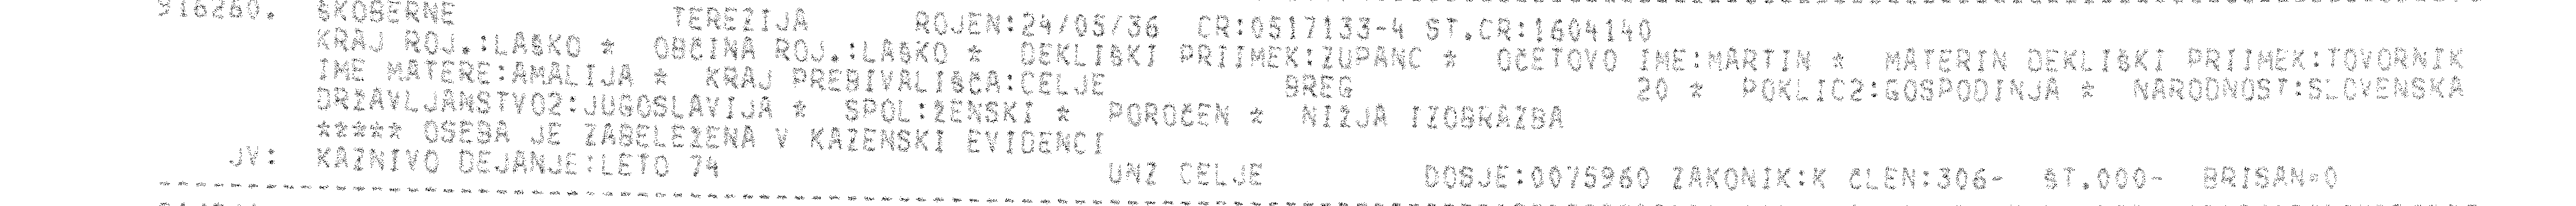 916260. ŠKOBERNE TEREZIJA ROJEN:24/05/36 CR:0517133-4 ST.CR:1604140
KRAJ ROJ.:LAŠKO * OBČINA ROJ.:LAŠKO * DEKLIŠKI PRIIMEK:ZUPANC * OČETOVO IME:MARTIN * MATERIN DEKLIŠKI PRIIMEK:TOVORNIK
IME MATERE:AMALIJA * KRAJ PREBIVALIŠČA:CELJE BREG 20 * POKLIC2:GOSPODINJA * NARODNOST:SLOVENSKA
DRŽAVLJANSTVO2:JUGOSLAVIJA * SPOL:ŽENSKI * POROČEN * NIŽJA IZOBRAZBA
***** OSEBA JE ZABELEŽENA V KAZENSKI EVIDENCI
JV: KAZNIVO DEJANJE:LETO 74 UNZ CELJE DOSJE:0075960 ZAKONIK:K ČLEN:306- ŠT.000- BRISAN=0